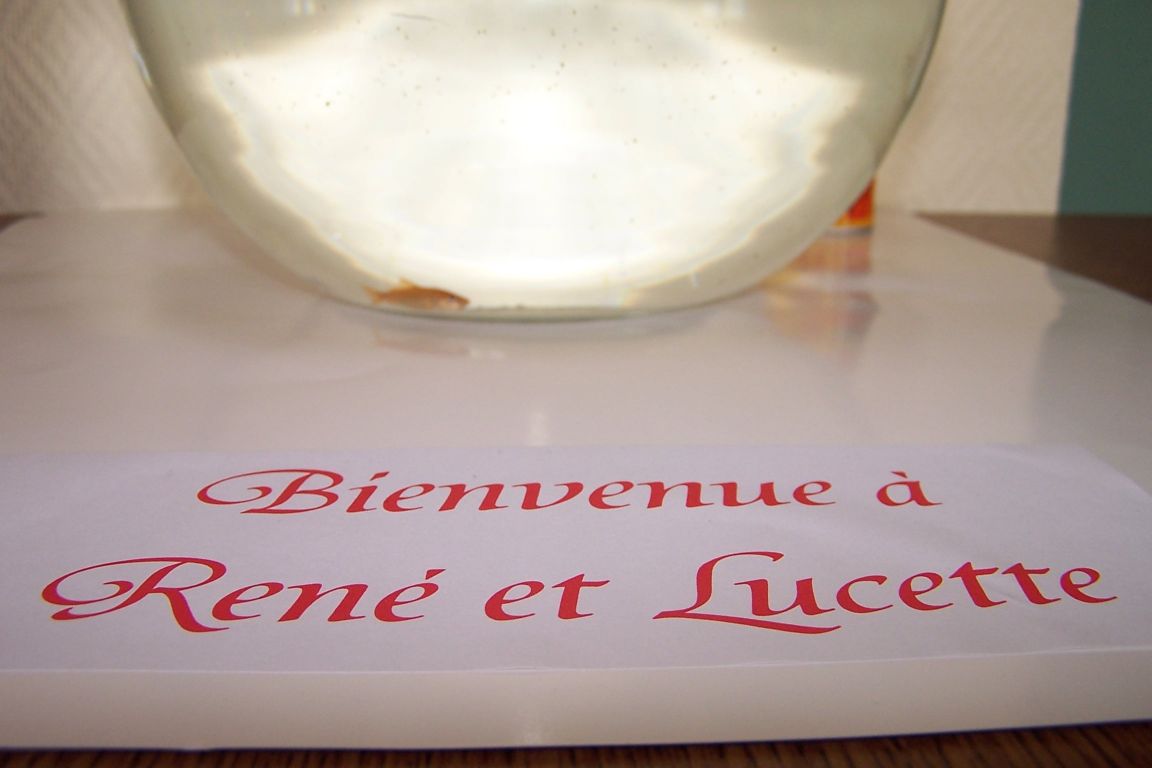 Bienvenue à
René et Lucette